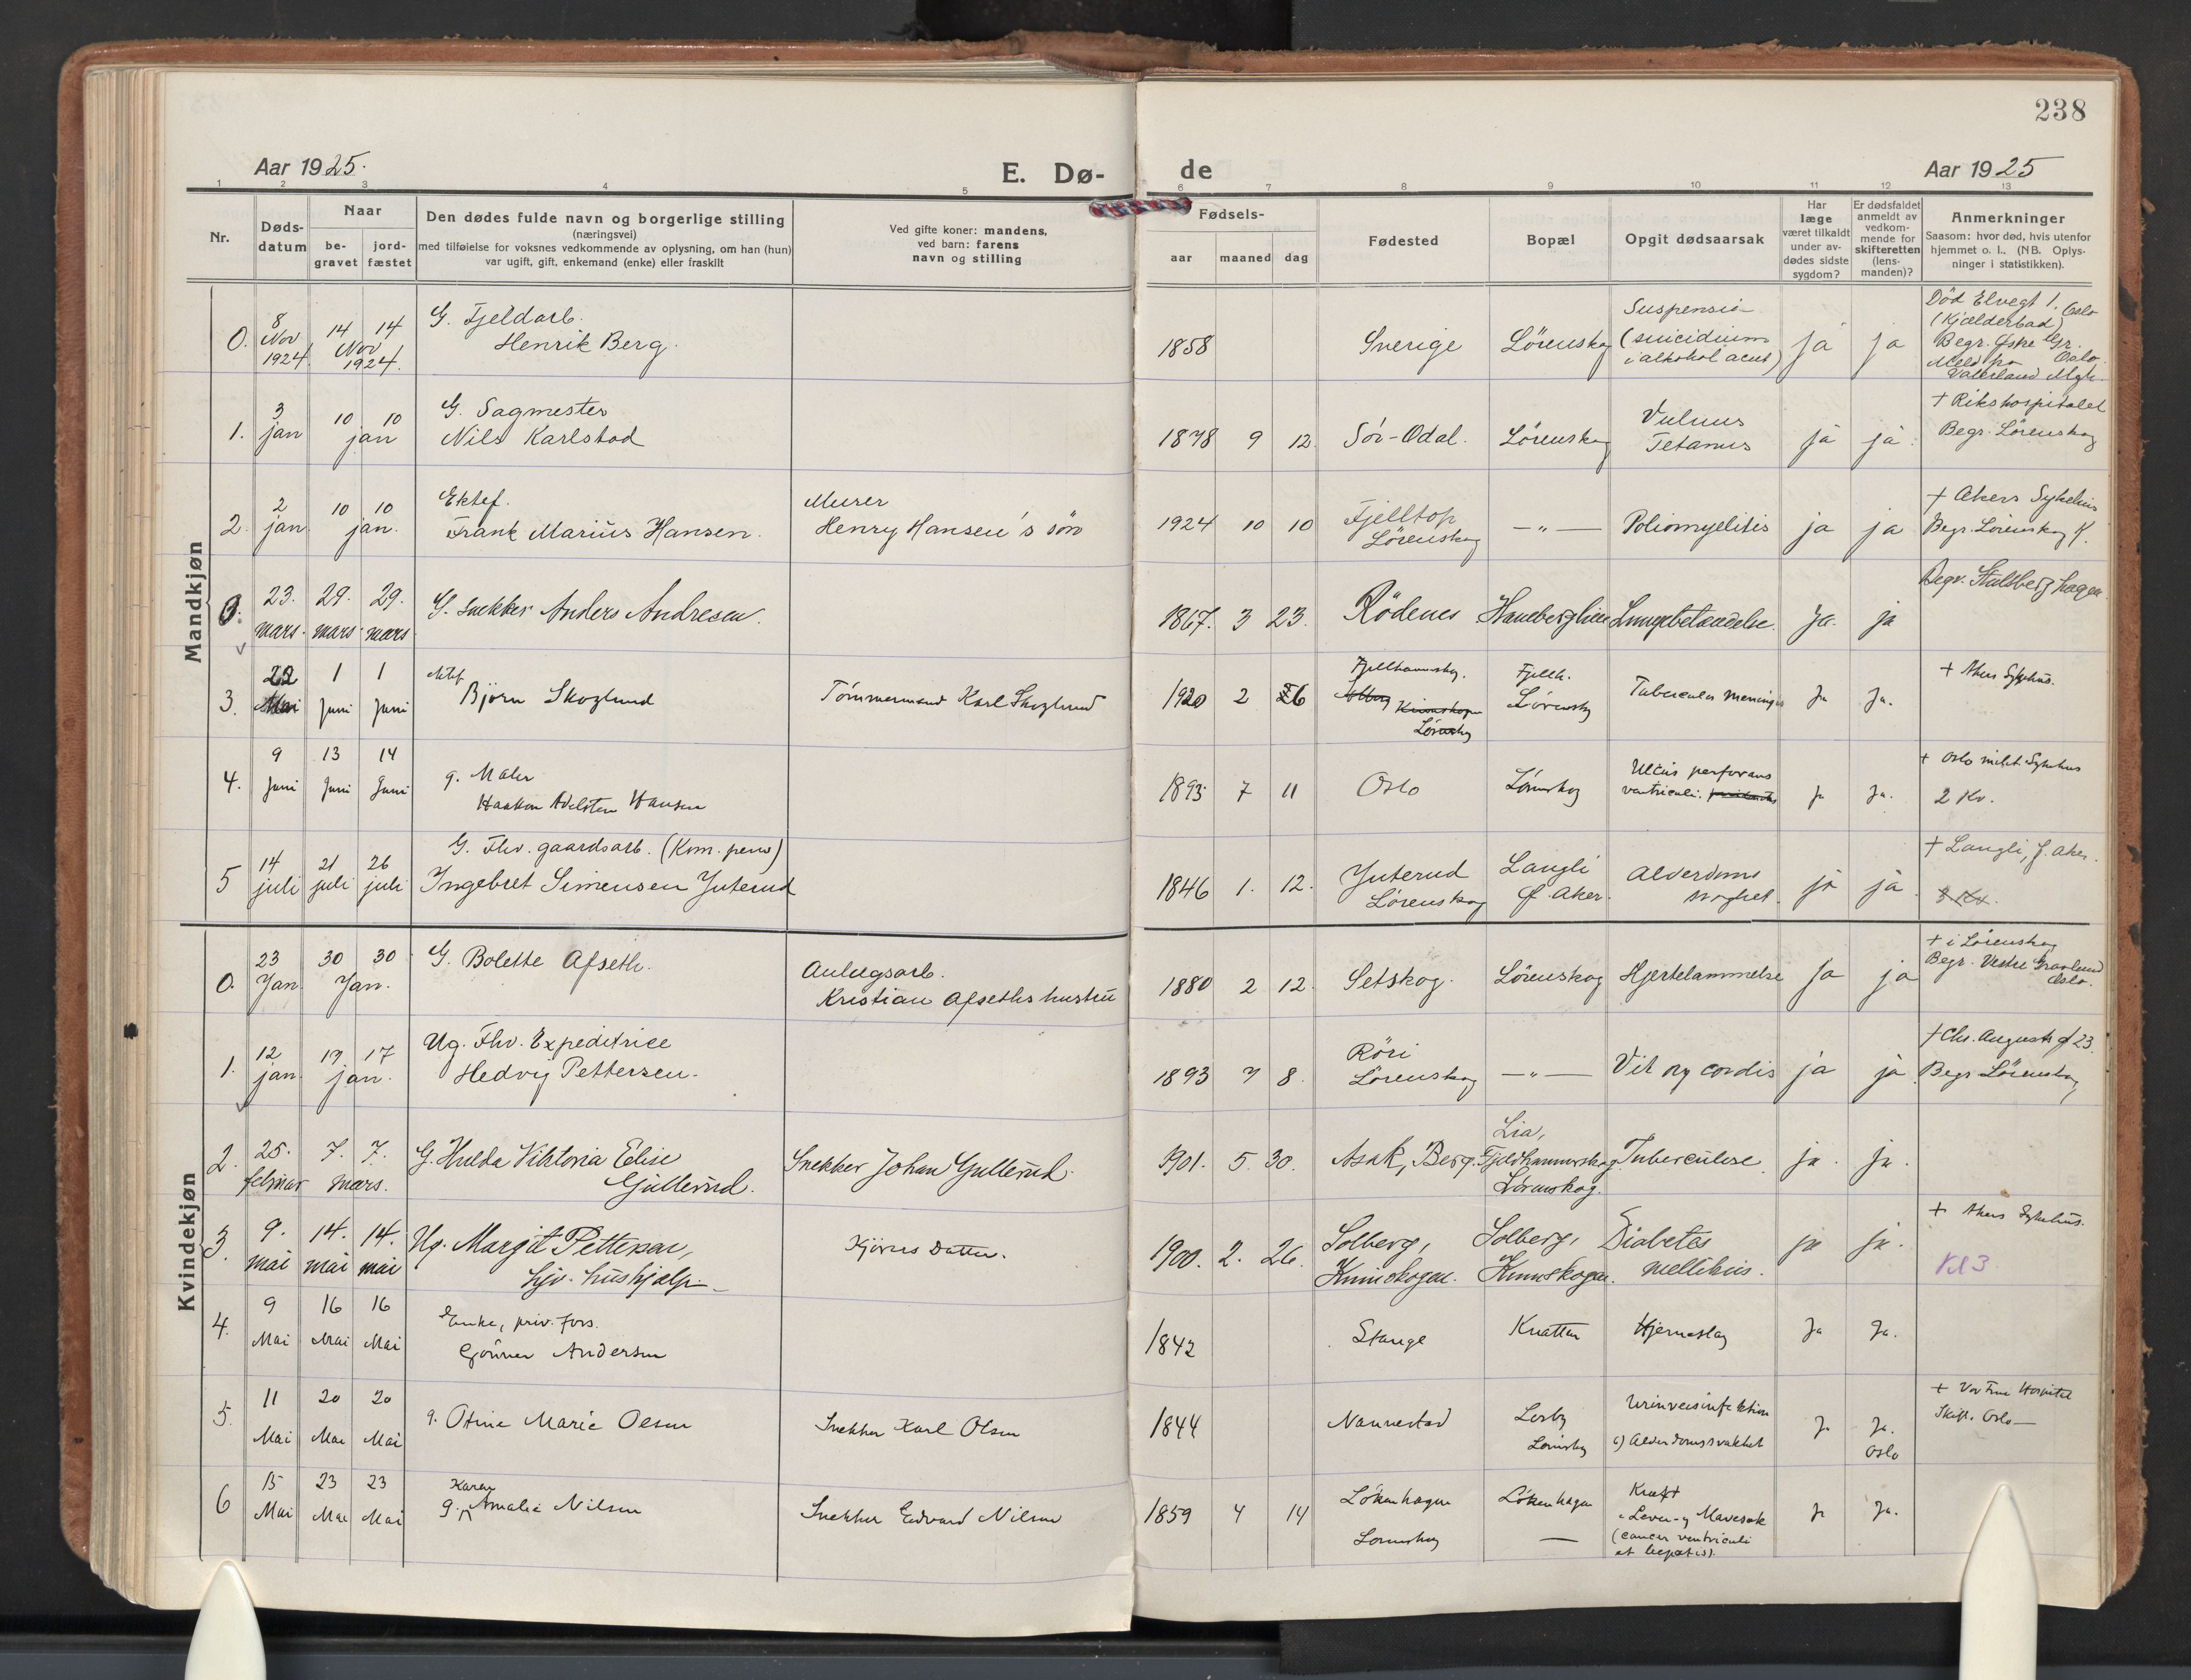 238
Aar 1925.
E. Dø-
de
Aar 1925
1 2 3 4 5 6 7 8 9 10 11 12 13
Nr.
Døds-
datum
Naar
be-
gravet
jord-
fæstet
Den dødes fulde navn og borgerlige stilling
(næringsvei)
med tilføielse for voksnes vedkommende av oplysning, om han (hun)
var ugift, gift, enkemand (enke) eller fraskilt
Ved gifte koner: mandens,
ved barn: farens
navn og stilling
Fødsels-
aar maaned dag
Fødested
Bopæl
Opgit dødsaarsak
Har
læge
været tilkaldt
under av-
dødes sidste
sygdom?
Er dødsfaldet
anmeldt av
vedkom-
mende for
skifteretten
(lens-
manden)?
Anmerkninger
Saasom: hvor død, hvis utenfor
hjemmet o. l., (NB. Oplys-
ninger i statistikken).
Mandkjøn
0. 8 Nov 1924 14 14 Nov 1924.
G. Fjeldarb.
Henrik Berg.
1858 Sverige Lörenskog
Suspensio
(suicidium
i alkohol acut)
ja ja
Död Elvegt 1. Oslo
(Kjælderbad)
Begr. Østre Gr.
Oslo.
1. 3 jan 10 10 jan
G. Sagmester
Nils Karlstad
1878 9 12. Sör-Odal. Lörenskog
Vulnus
Tetanus
ja ja.
+ Rikshospitalet
Begr. Lörenskog
2. 2 jan. 10 10 jan.
Ektef.
Frank Marius Hansen.
Murer
Henry Hansen's sön
1924 10 10
Fjelltop
Lörenskog
—〃— Poliomyelitis ja ja
+ Akers Sykehus
Begr. Lörenskog K.
0. 23. mars. 29. mars. 29. mars
G. Snekker Anders Andresen.
1867. 3 23. Rödenes Haneborglien Lungebetændelse. Ja. ja
Begr. Stalsberghagen
3. 22 Mai 1 Juni 1 Juni
ektef
Björn Skoglund
Tömmermand Karl Skoglund
1920 2 26
Fjellhammerskog.
Solberg Knimskogen
Lörenskog
Fjellh.
Lörenskog
Tuberculøs meningit
Ja Ja.
+ Akers Sykehus.
4. 9 Juni 13 Juni 14 Juni
g. Maler
Haakon Adelsten Hansen
1893 7 11 Oslo Lörenskog
Ulcus perforans
ventriculi.
ja Ja.
+ Oslo milit Sykehus
2 Kv.
5 14 juli 21 juli 26 juli
G. Fhv. gaardsarb. (Kom. pens)
Ingebret Simensen Juterud
1846 1. 12.
Juterud
Lörenskog
Langli
Ø. Aker.
Alderdoms
svaghet.
ja ja.
+ Langli, Ø. Aker.
3 Kv.
Kvindekjøn
0. 23 Jan 30 30 Jan.
G. Bolette Afseth.
Anlægsarb.
Kristian Afseths hustru
1880 2 12. Setskog. Lörenskog Hjertelammelse Ja ja
+ i Lörenskog
Begr. Vestre Gravlund
Oslo.
1. 12 jan 17 17 jan.
Ug. Fhv. Expeditrice
Hedvig Pettersen.
1893 7 8.
Röri
Lörenskog
—〃— Vit og cordis ja ja
+ Chr. Augusts g 23.
Begr Lörenskog
2. 25. februar 7. 7. mars.
G. Hulda Viktoria Elise
Gullerud.
Snekker Johan Gullerud.
1901. 5. 30. Asak, Berg.
Lia,
Fjeldhammerskog
Lörenskog.
Tuberculose. ja. ja.
3. 9. mai 14. mai 14. mai
Ug. Margit Pettersen,
hjv. hushjælp
Kjörers Datter.
1900. 2. 26.
Solberg,
Knimskogen.
Solberg,
Knimskogen.
Diabetes
mellitus.
ja ja.
+ Akers Sykehus.
Kl 3
4. 9 Mai 16 Mai 16 Mai
Enke, priv. fors.
Gjönner Andersen
1842 Stange Knatten Hjerneslag Ja Ja.
5. 11 Mai 20 Mai 20 Mai
g. Otine Marie Olsen
Snekker Karl Olsen
1844 Nannestad
Losby
Lörenskog
Urinveisinfektion
Alderdomssvakhet
Ja Ja.
Oslo
+ Vor Frue Hospital
Skift. Oslo —
6 15 Mai 23 Mai 23 Mai
Karen
g. Amalie Nilsen
Snekker Edvard Nilsen
1859 4 14
Lökenhagen
Lörenskog
Lökenhagen
—
Kræft
i Lever- og Mavesæk
(cancer ventriculi
et hepatis).
Ja Ja.